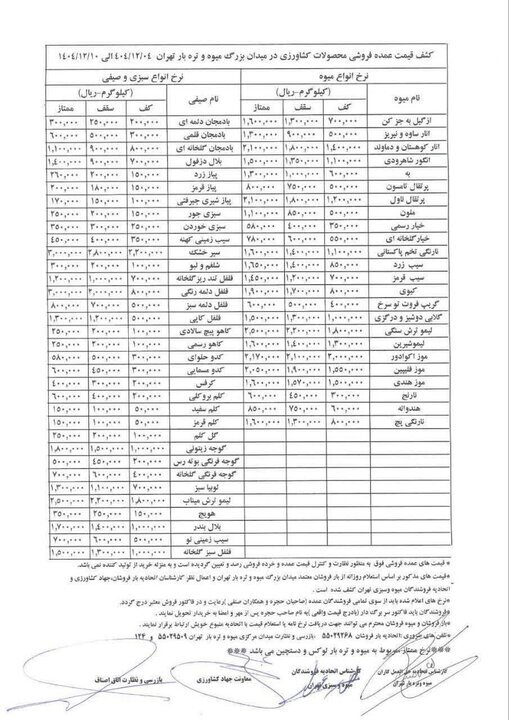 کشف قیمت عمده فروشی محصولات کشاورزی در میدان بزرگ میوه و تره بار تهران ۱۴۰۴/۱۲/۰۴ الی ۱۴۰۴/۱۲/۱۰
نرخ انواع میوه نرخ انواع سبزی و صیفی
(کیلوگرم-ریال) (کیلوگرم-ریال)
نام میوه کف سقف ممتاز نام صیفی کف سقف ممتاز
ازگیل به جز کن ۷۰۰,۰۰۰ ۱,۳۰۰,۰۰۰ ۱,۶۰۰,۰۰۰ بادمجان دلمه ای ۲۰۰,۰۰۰ ۲۵۰,۰۰۰ ۳۰۰,۰۰۰
انار ساوه و نیریز ۵۰۰,۰۰۰ ۹۰۰,۰۰۰ ۱,۳۰۰,۰۰۰ بادمجان قلمی ۳۰۰,۰۰۰ ۵۰۰,۰۰۰ ۶۰۰,۰۰۰
انار کوهستان و دماوند ۱,۴۰۰,۰۰۰ ۱,۸۰۰,۰۰۰ ۲,۱۰۰,۰۰۰ بادمجان گلخانه ای ۸۰۰,۰۰۰ ۹۰۰,۰۰۰ ۱,۱۰۰,۰۰۰
انگور شاهرودی ۱,۱۰۰,۰۰۰ ۱,۳۵۰,۰۰۰ ۱,۵۰۰,۰۰۰ بلال دزفول ۷۰۰,۰۰۰ ۹۰۰,۰۰۰ ۱,۴۰۰,۰۰۰
به ۶۰۰,۰۰۰ ۱,۰۰۰,۰۰۰ ۱,۳۰۰,۰۰۰ پیاز زرد ۱۵۰,۰۰۰ ۲۰۰,۰۰۰ ۲۶۰,۰۰۰
پرتقال تامسون ۵۰۰,۰۰۰ ۷۵۰,۰۰۰ ۸۰۰,۰۰۰ پیاز قرمز ۱۵۰,۰۰۰ ۱۸۰,۰۰۰ ۲۰۰,۰۰۰
پرتقال ناول ۱,۲۰۰,۰۰۰ ۱,۸۰۰,۰۰۰ ۲,۱۰۰,۰۰۰ پیاز شیری جیرفتی ۱۰۰,۰۰۰ ۱۵۰,۰۰۰ ۱۷۰,۰۰۰
ملون ۵۰۰,۰۰۰ ۸۵۰,۰۰۰ ۱,۱۰۰,۰۰۰ سبزی جور ۱۵۰,۰۰۰ ۲۰۰,۰۰۰ ۲۵۰,۰۰۰
خیار رسمی ۳۵۰,۰۰۰ ۴۰۰,۰۰۰ ۵۸۰,۰۰۰ سبزی خوردن ۲۵۰,۰۰۰ ۳۰۰,۰۰۰ ۳۵۰,۰۰۰
خیارگلخانه ای ۵۵۰,۰۰۰ ۶۰۰,۰۰۰ ۷۸۰,۰۰۰ سیب زمینی کهنه ۳۵۰,۰۰۰ ۴۰۰,۰۰۰ ۴۵۰,۰۰۰
نارنگی تخم پاکستانی ۱,۱۰۰,۰۰۰ ۱,۴۰۰,۰۰۰ ۱,۶۰۰,۰۰۰ سیر خشک ۲,۲۰۰,۰۰۰ ۲,۸۰۰,۰۰۰ ۳,۰۰۰,۰۰۰
سیب زرد ۸۵۰,۰۰۰ ۱,۴۰۰,۰۰۰ ۱,۶۵۰,۰۰۰ شلغم و لبو ۱۰۰,۰۰۰ ۲۰۰,۰۰۰ ۳۰۰,۰۰۰
سیب قرمز ۷۰۰,۰۰۰ ۱,۴۰۰,۰۰۰ ۱,۶۰۰,۰۰۰ فلفل تند ریزگلخانه ۷۰۰,۰۰۰ ۱,۰۰۰,۰۰۰ ۱,۲۰۰,۰۰۰
کیوی ۸۰۰,۰۰۰ ۱,۷۰۰,۰۰۰ ۱,۹۰۰,۰۰۰ فلفل دلمه رنگی ۸۰۰,۰۰۰ ۲,۰۰۰,۰۰۰ ۳,۰۰۰,۰۰۰
گریپ فروت تو سرخ ۴۰۰,۰۰۰ ۵۰۰,۰۰۰ ۶۰۰,۰۰۰ فلفل دلمه سبز ۵۰۰,۰۰۰ ۷۰۰,۰۰۰ ۸۰۰,۰۰۰
گلابی دوشیز و درگزی ۱,۰۰۰,۰۰۰ ۱,۳۰۰,۰۰۰ ۱,۷۰۰,۰۰۰ فلفل کاپی ۵۰۰,۰۰۰ ۱,۲۰۰,۰۰۰ ۱,۳۰۰,۰۰۰
لیمو ترش سنگی ۱,۸۰۰,۰۰۰ ۲,۲۰۰,۰۰۰ ۲,۵۰۰,۰۰۰ کاهو پیچ سالادی ۱۰۰,۰۰۰ ۲۰۰,۰۰۰ ۲۵۰,۰۰۰
لیموشیرین ۱,۳۰۰,۰۰۰ ۱,۴۰۰,۰۰۰ ۱,۹۰۰,۰۰۰ کاهو رسمی ۱۰۰,۰۰۰ ۲۰۰,۰۰۰ ۲۵۰,۰۰۰
موز اکوادور ۲,۰۰۰,۰۰۰ ۲,۱۰۰,۰۰۰ ۲,۱۷۰,۰۰۰ کدو حلوای ۳۰۰,۰۰۰ ۵۰۰,۰۰۰ ۵۸۰,۰۰۰
موز فلیپین ۱,۵۵۰,۰۰۰ ۱,۹۰۰,۰۰۰ ۲,۰۵۰,۰۰۰ کدو مسمایی ۳۰۰,۰۰۰ ۴۵۰,۰۰۰ ۶۰۰,۰۰۰
موز هندی ۱,۵۰۰,۰۰۰ ۱,۵۷۰,۰۰۰ ۱,۶۰۰,۰۰۰ کرفس ۲۰۰,۰۰۰ ۳۰۰,۰۰۰ ۴۰۰,۰۰۰
نارنج ۳۰۰,۰۰۰ ۴۵۰,۰۰۰ ۶۰۰,۰۰۰ کلم بروکلی ۲۰۰,۰۰۰ ۴۰۰,۰۰۰ ۶۰۰,۰۰۰
هندوانه ۶۰۰,۰۰۰ ۷۵۰,۰۰۰ ۸۵۰,۰۰۰ کلم سفید ۵۰,۰۰۰ ۱۰۰,۰۰۰ ۱۵۰,۰۰۰
نارنگی پج ۸۰۰,۰۰۰ ۱,۳۰۰,۰۰۰ ۱,۶۰۰,۰۰۰ کلم قرمز ۵۰,۰۰۰ ۱۰۰,۰۰۰ ۱۵۰,۰۰۰
گل کلم ۱۰۰,۰۰۰ ۲۰۰,۰۰۰ ۲۵۰,۰۰۰
گوجه زیتونی ۱,۰۰۰,۰۰۰ ۱,۵۰۰,۰۰۰ ۱,۸۰۰,۰۰۰
گوجه فرنگی بوته رس ۲۰۰,۰۰۰ ۴۵۰,۰۰۰ ۵۰۰,۰۰۰
گوجه فرنگی گلخانه ۴۰۰,۰۰۰ ۶۰۰,۰۰۰ ۷۰۰,۰۰۰
لوبیا سبز ۷۰۰,۰۰۰ ۱,۱۰۰,۰۰۰ ۱,۳۰۰,۰۰۰
لیمو ترش میناب ۱,۸۰۰,۰۰۰ ۲,۲۰۰,۰۰۰ ۲,۵۰۰,۰۰۰
هویج ۱۵۰,۰۰۰ ۲۵۰,۰۰۰ ۳۵۰,۰۰۰
بلال بندر ۱,۰۰۰,۰۰۰ ۱,۴۰۰,۰۰۰ ۱,۷۰۰,۰۰۰
سیب زمینی نو ۵۰۰,۰۰۰ ۶۰۰,۰۰۰ ۷۰۰,۰۰۰
فلفل سبز گلخانه ۱,۰۰۰,۰۰۰ ۱,۳۰۰,۰۰۰ ۱,۵۰۰,۰۰۰
* قیمت های عمده فروشی فوق به منظور نظارت و کنترل قیمت عمده و خرده فروشی رصد و تعیین گردیده است و به منزله خرید از تولید کننده نمی باشد.
*قیمت های مذکور بر اساس استعلام روزانه از بار فروشان معتمد میدان بزرگ میوه و تره بار تهران و اعمال نظر کارشناسان اتحادیه بار فروشان، جهاد کشاورزی و
اتحادیه فروشندگان میوه وسبزی تهران کشف شده است.
*نرخ های اعلام شده باید از سوی تمامی فروشندگان عمده (صاحبان حجره و همکاران صنفی) رعایت و در فاکتور فروش معتبر درج گردد.
*فروشندگان باید فاکتور سر برگ دار (با درج قیمت واقعی) به نام صاحب حجره پس از مهر و امضا به خریدار تحویل نمایند.
*بارفروشان و میوه فروشان محترم می توانند جهت دریافت نرخ نامه یا استعلام قیمت با اتحادیه متبوع خویش ارتباط برقرار نمایند.
*تلفن های ضروری: اتحادیه بار فروشان ۵۵۰۴۹۲۶۸ -بازرسی و نظارت میدان مرکزی میوه و تره بار تهران ۵۵۰۲۹۵۰۹ و ۱۲۴
***نرخ ممتاز مربوط به میوه و تره بار لوکس و دستچین می باشد***
کارشناس اتحادیه حق العمل کاران میوه و تره بار تهران
کارشناس اتحادیه فروشندگان میوه وسبزی تهران
معاونت جهاد کشاورزی
بازرسی و نظارت اتاق اصناف